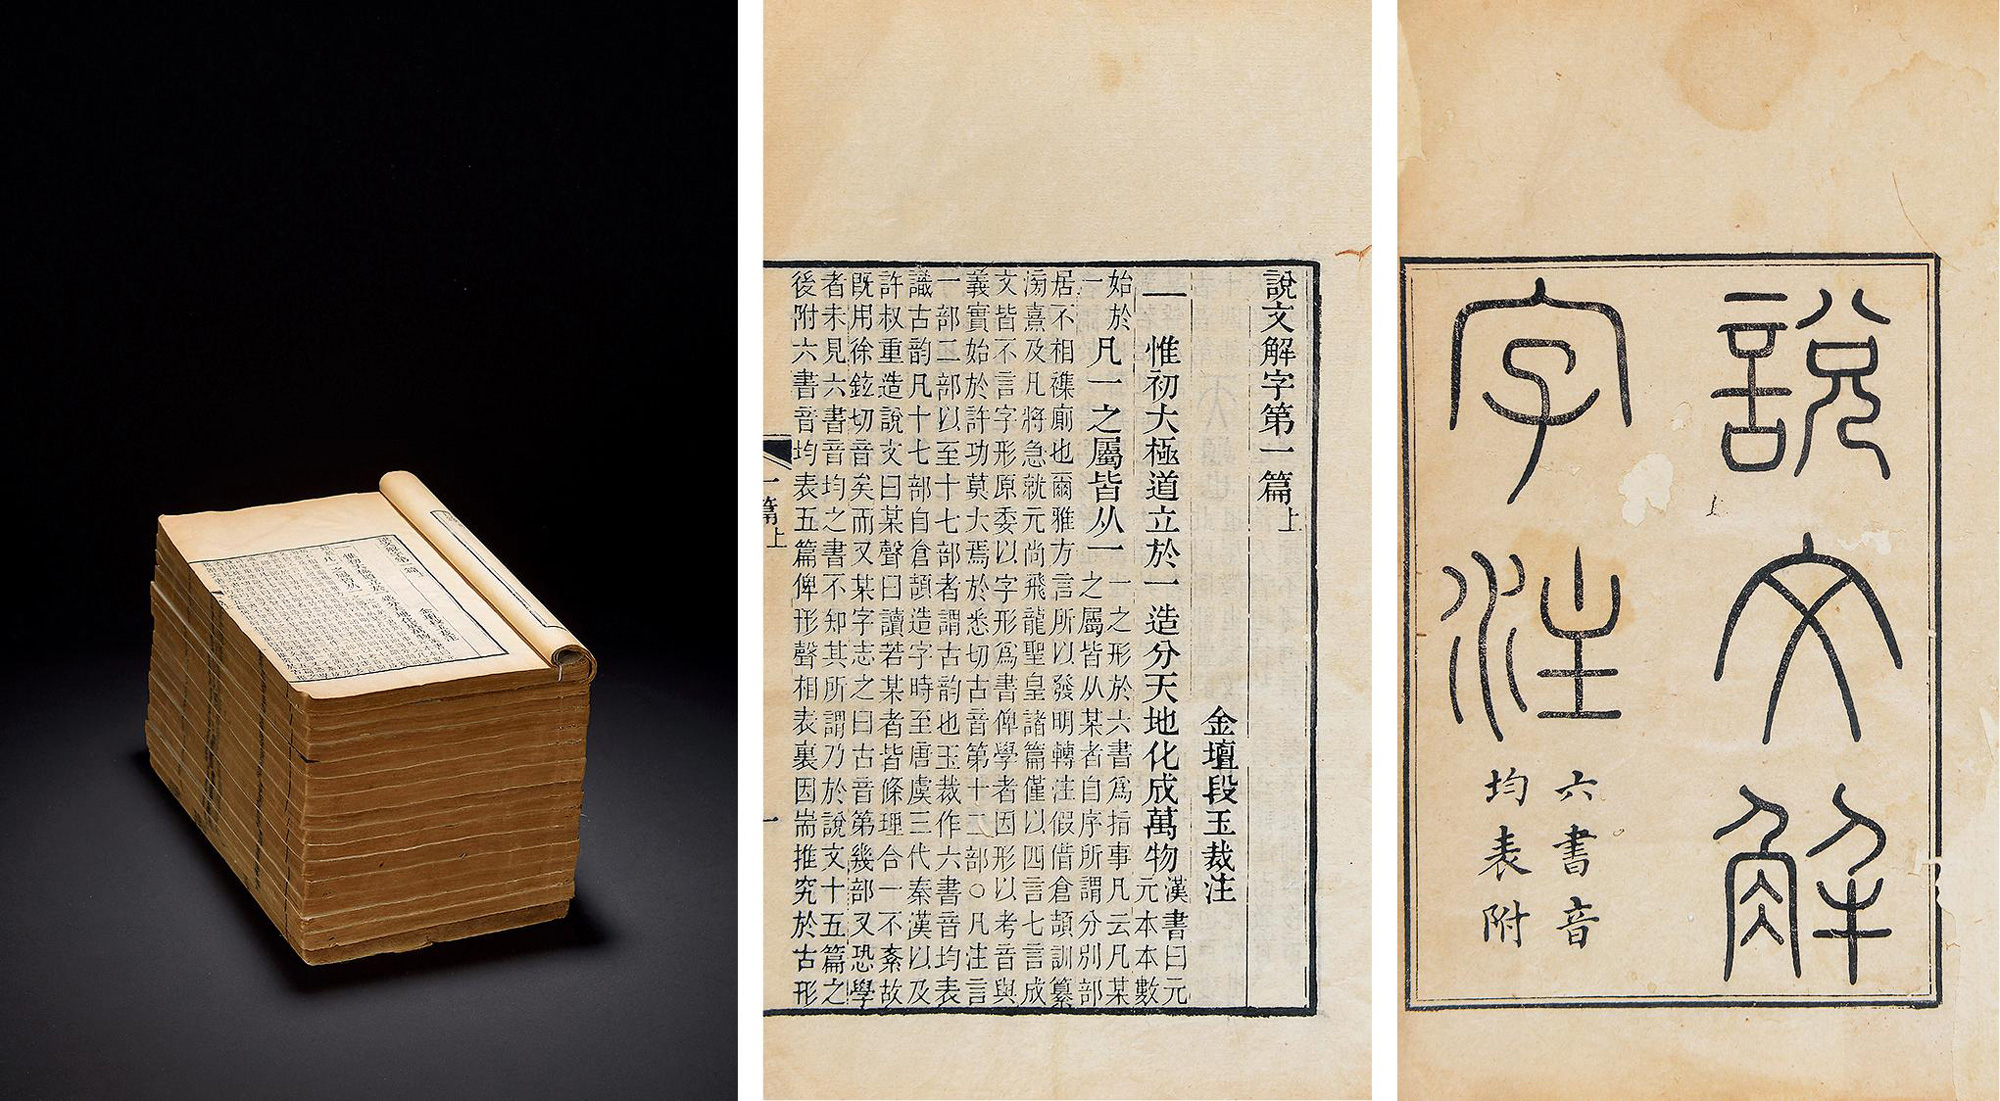 說文解字第一篇上
金壇段玉裁注
一 惟初大極道立於一造分天地化成萬物漢書曰元
元本本數
始於
一
凡一之屬皆从一一之形於六書爲指事凡云凡某
之屬皆从某者自序所謂分別部
居不相襍廁也爾雅方言所以發明轉注假借倉頡訓纂
滂熹及凡將急就元尚飛龍聖皇諸篇僅以四言七言成
文皆不言字形原委以字形爲書俾學者因形以考音與
義實始於許功莫大焉於悉切古音第十二部○凡注言
一部二部以至十七部者謂古韵也玉裁作六書音均表
識古韵凡十七部自倉頡造字時至唐虞三代秦漢以及
許叔重造說文曰某聲曰讀若某者皆條理合一不紊故
既用徐鉉切音矣而又某字志之曰古音第幾部又恐學
者未見六書音均之書不知其所謂乃於說文十五篇之
後附六書音均表五篇俾形聲相表裏因耑推究於古形
一篇上
一
說文解
字注
六書音
均表附